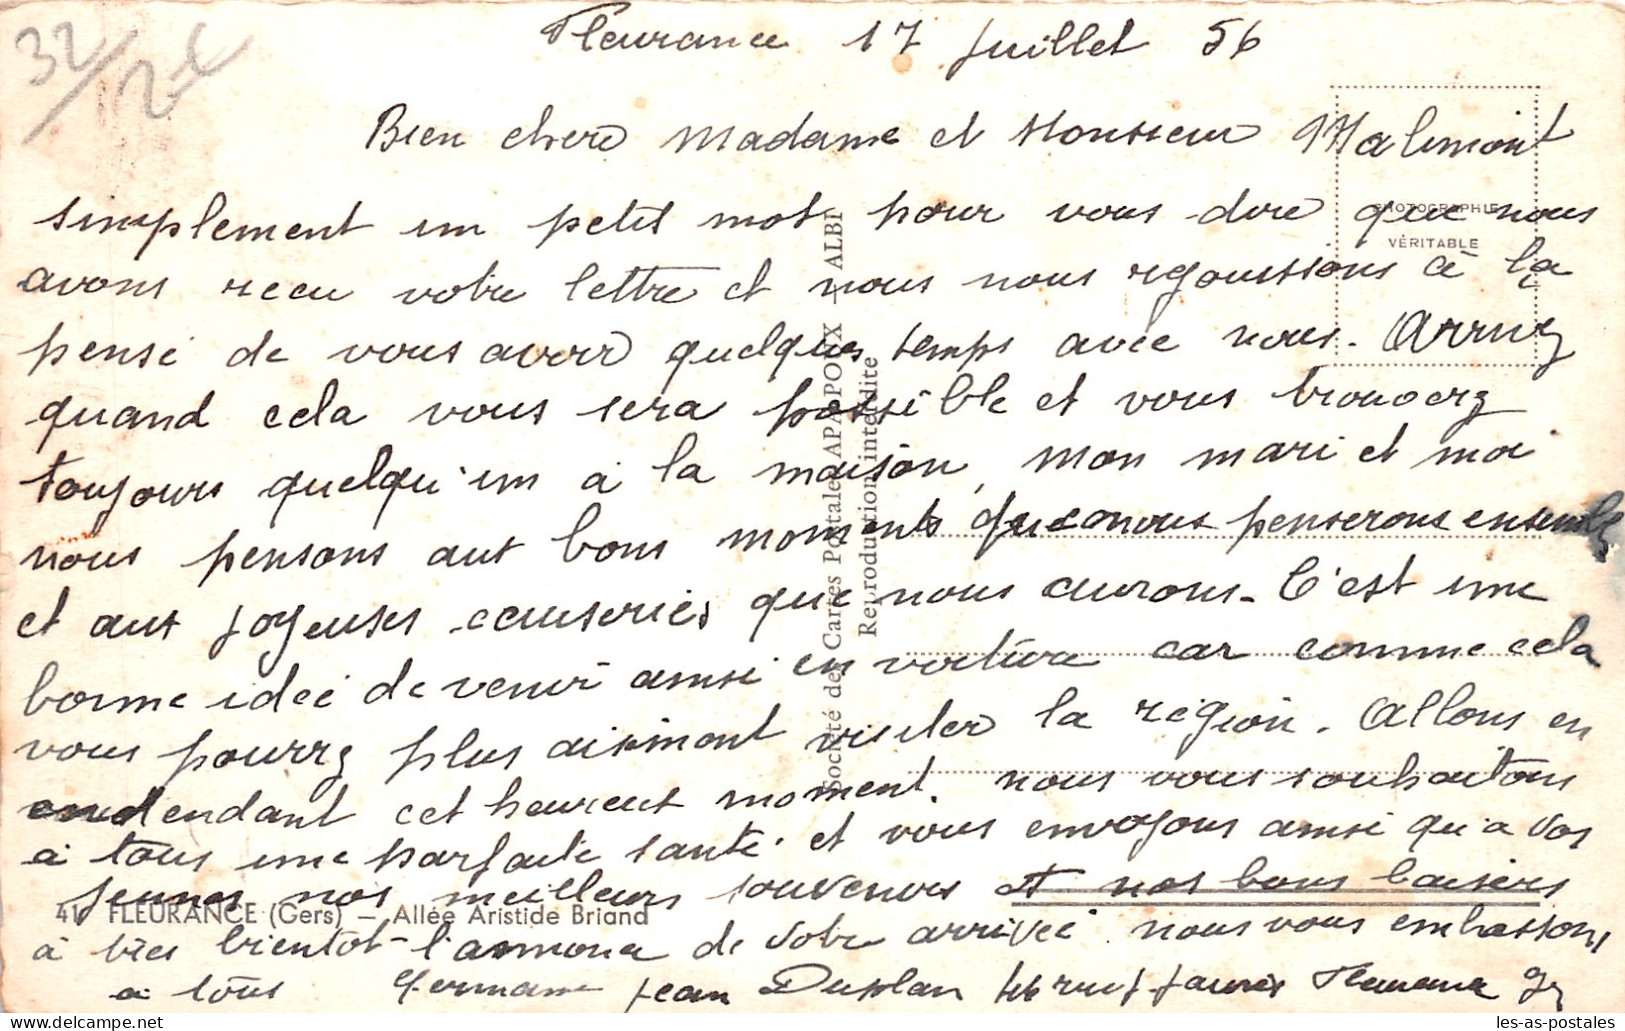 32/2€
Fleurance 17 Juillet 56
Bien chere Madame et Monsieur Malimont
simplement un petit mot pour vous dire que nous
avons recu votre lettre et nous nous rejouissons à la
pensé de vous avoir quelques temps avec nous. Arrivez
quand cela vous sera possible et vous trouverz
toujours quelqu'un à la maison, mon mari et moi
nous pensons aux bons moments que nous penserons ensemble
et aux joyeuses causeries que nous aurons. C'est une
bonne ideé de venir ainsi en voiture car comme cela
vous pourrz plus aisimont visiter la région. Allons en
endendant cet heureux moment. nous vous souhaitons
à tous une parfaite santé. et vous envoyons ainsi qu'a vos
jeunes nos meilleurs souvenirs et nos bons baisers
à très bientôt l'annonce de votre arriveé. nous vous embrassons
à tous Germaine Jean Duplan Jaurès Fleurance
PHOTOGRAPHIE
VÉRITABLE
Société des Cartes Postales APAPOUX - ALBI
Reproduction interdite
41. FLEURANCE (Gers) — Allée Aristide Briand
les-as-postales.com